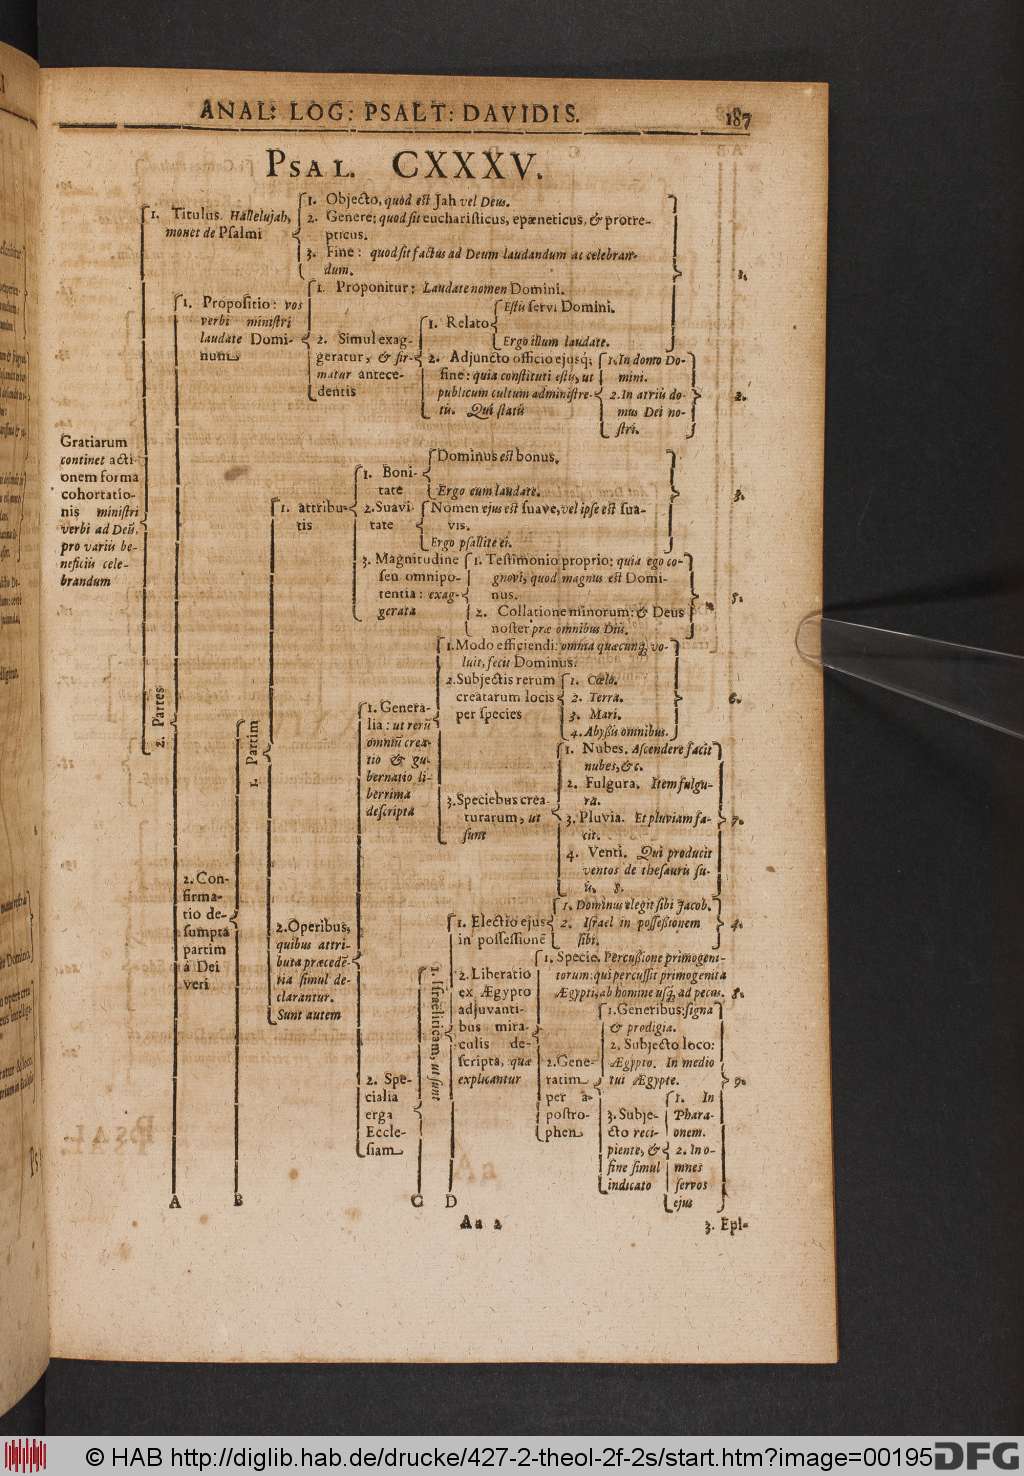 ANAL: LOG: PSALT: DAVIDIS.
187
PSAL. CXXXV.
Gratiarum
continet acti-
onem forma
cohortatio-
nis ministri
verbi ad Deũ,
pro variis be-
neficiis cele-
brandum
1. Titulus. Hallelujah,
monet de Psalmi
1. Objecto, quod est Jah vel Deus.
2. Genere; quod sit eucharisticus, epæneticus, & protre-
pticus.
3. Fine: quod sit factus ad Deum laudandum ac celebran-
dum.
1.
2. Partes
1. Propositio: vos
verbi ministri
laudate Domi-
num
1. Proponitur: Laudate nomen Domini.
2. Simul exag-
geratur, & fir-
matur antece-
dentis
1. Relato
Estis servi Domini.
Ergo illum laudate.
2. Adjuncto officio ejusq;
fine: quia constituti estis, ut
publicum cultum administre-
tis. Qui statis
1. In domo Do-
mini.
2. In atriis do-
mus Dei no-
stri.
2.
2. Con-
firma-
tio de-
sumpta
partim
à Dei
veri
1. Partim
1. attribu-
tis
1. Boni-
tate
Dominus est bonus.
Ergo eum laudate.
2. Suavi-
tate
Nomen ejus est suave, vel ipse est sua-
vis.
Ergo psallite ei.
3.
3. Magnitudine
seu omnipo-
tentia: exag-
gerata
1. Testimonio proprio: quia ego co-
gnovi, quod magnus est Domi-
nus.
2. Collatione minorum: & Deus
noster præ omnibus Diis.
5.
2. Operibus,
quibus attri-
buta præcedē-
tia simul de-
clarantur.
Sunt autem
1. Genera-
lia: ut rerũ
omniũ crea-
tio & gu-
bernatio li-
berrima
descripta
1. Modo efficiendi: omnia quæcunq; vo-
luit, fecit Dominus.
2. Subjectis rerum
creatarum locis
per species
1. Cœlo.
2. Terra.
3. Mari.
4. Abyssis omnibus.
6.
3. Speciebus crea-
turarum, ut
sunt
1. Nubes. Ascendere facit
nubes, &c.
2. Fulgura. Item fulgu-
ra.
3. Pluvia. Et pluviam fa-
cit.
4. Venti. Qui producit
ventos de thesauris su-
is. 8.
7.
2. Spe-
cialia
erga
Eccle-
siam
1. Israeliticam, ut sunt
1. Electio ejus
in possessionē
1. Dominus elegit sibi Jacob.
2. Israel in possessionem
sibi.
4.
2. Liberatio
ex Ægypto
adjuvanti-
bus mira-
culis de-
scripta, quæ
explicantur
1. Specie. Percussione primogeni-
torum: qui percussit primogenita
Ægypti, ab homine usq; ad pecus.
8.
2. Gene-
ratim
per a-
postro-
phen
1. Generibus: signa
& prodigia.
2. Subjecto loco:
Ægypto. In medio
tui Ægypte.
3. Subje-
cto reci-
piente, &
fine simul
indicato
1. In
Phara-
onem.
2. In o-
mnes
servos
ejus
9.
A B C D
Aa 2
3. Epi-
© HAB http://diglib.hab.de/drucke/427-2-theol-2f-2s/start.htm?image=00195
DFG